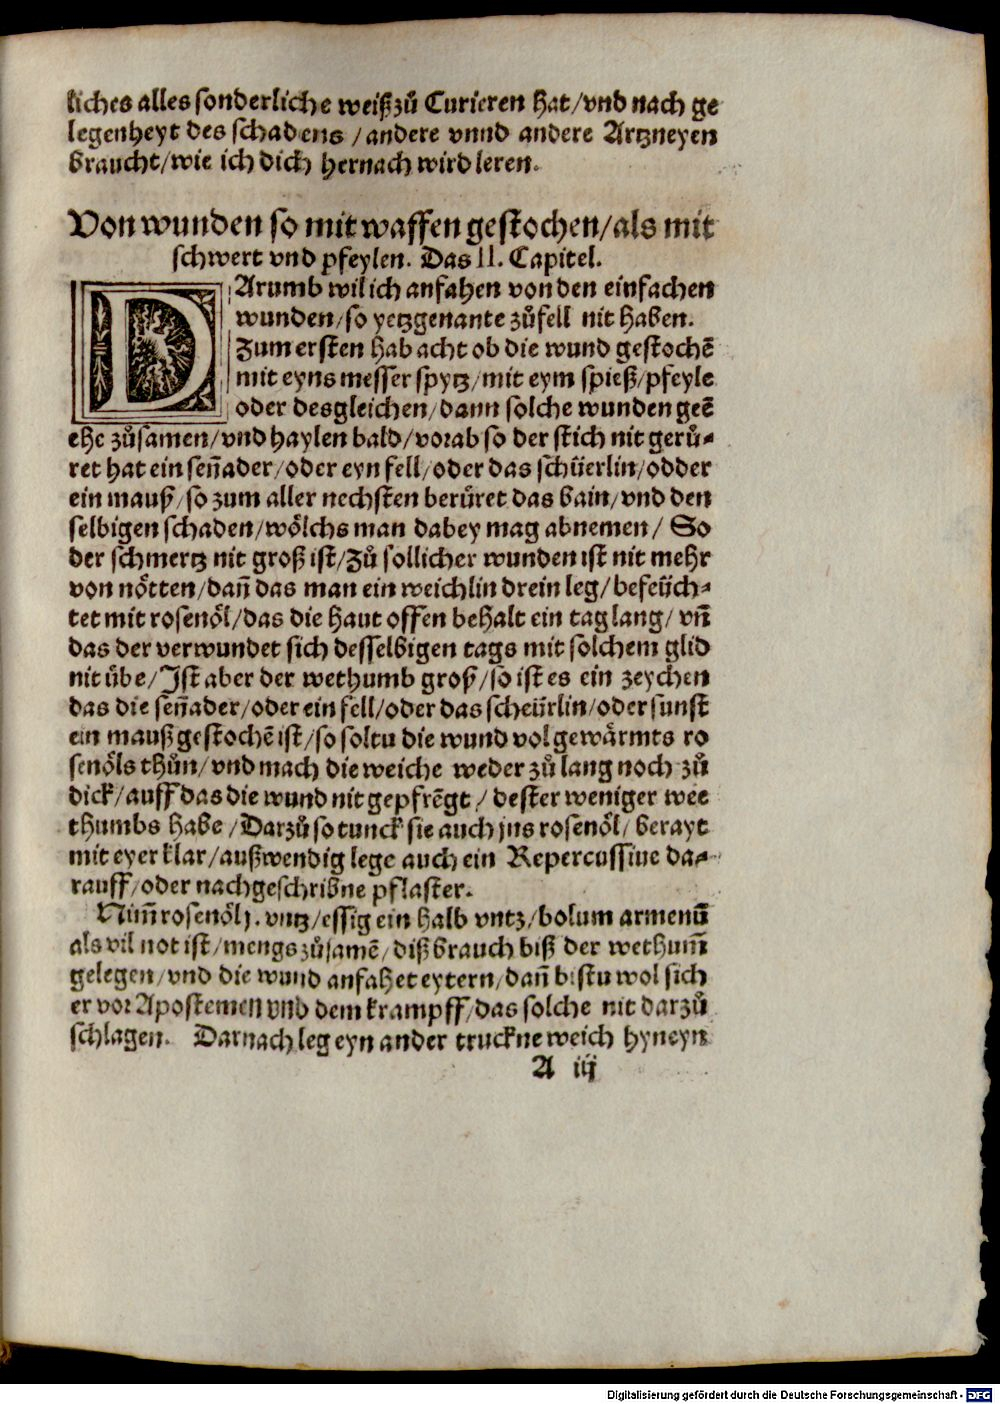 liches alles sonderliche weiß zů Curieren hat/vnd nach ge
legenheyt des schadens/andere vnnd andere Artzneyen
braucht/wie ich dich hernach wird leren.
Von wunden so mit waffen gestochen/als mit
schwert vnd pfeylen. Das II. Capitel.
DArumb wil ich anfahen von den einfachen
wunden/so yetzgenante zůfell nit haben.
Zum ersten hab acht ob die wund gestochē
mit eyns messer spytz/mit eym spieß/pfeyle
oder desgleichen/dann solche wunden geē
ehe zůsamen/vnd haylen bald/vorab so der stich nit gerů-
ret hat ein sen̄ader/oder eyn fell/oder das schüerlin/odder
ein mauß/so zum aller nechsten berůret das bain/vnd den
selbigen schaden/wölchs man dabey mag abnemen/ So
der schmertz nit groß ist/Zů sollicher wunden ist nit mehr
von nötten/dan̄ das man ein weichlin drein leg/befeüch-
tet mit rosenöl/das die haut offen behalt ein tag lang/vn̄
das der verwundet sich desselbigen tags mit solchem glid
nit übe/Ist aber der wethumb groß/so ist es ein zeychen
das die sen̄ader/oder ein fell/oder das scheürlin/oder sunst
ein mauß gestochē ist/so soltu die wund vol gewärmts ro
senöls thůn/vnd mach die weiche weder zů lang noch zů
dick/auff das die wund nit gepfrēgt/dester weniger wee
thumbs habe/Darzů so tunck sie auch jns rosenöl/berayt
mit eyer klar/außwendig lege auch ein Repercussiue da-
rauff/oder nachgeschribne pflaster.
Nim̄ rosenöl j. vntz/essig ein halb vntz/bolum armenū
als vil not ist/mengs zůsamē/diß brauch biß der wethum̄
gelegen/vnd die wund anfahet eytern/dan̄ bistu wol sich
er vor Apostemen vnd dem krampff/das solche nit darzů
schlagen. Darnach leg eyn ander truckne weich hyneyn
A iij
Digitalisierung gefördert durch die Deutsche Forschungsgemeinschaft - DFG